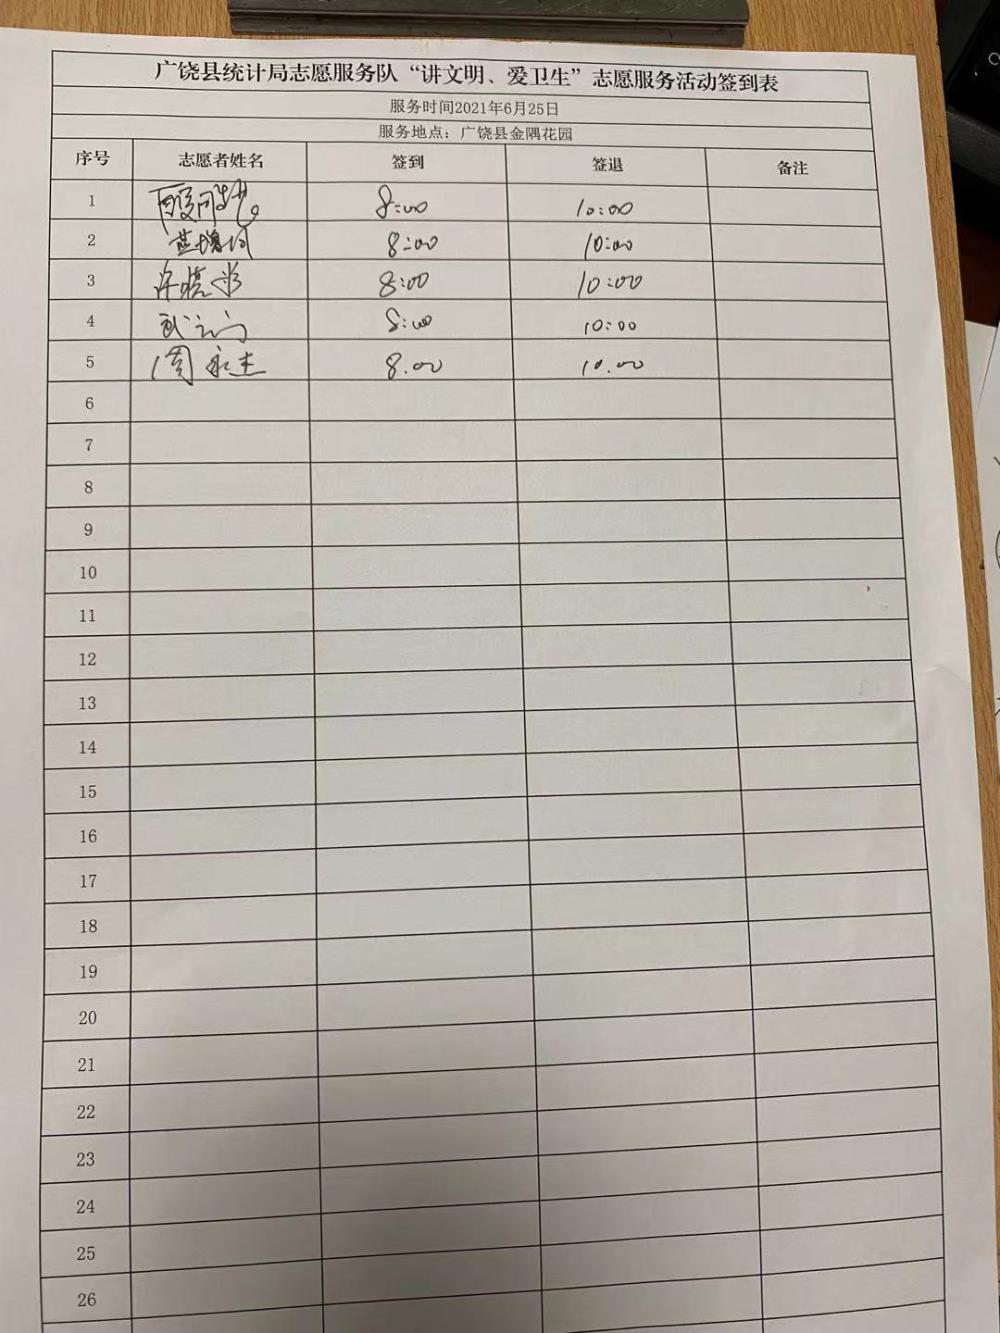 广饶县统计局志愿服务队“讲文明、爱卫生”志愿服务活动签到表
服务时间2021年6月25日
服务地点：广饶县金隅花园
序号 志愿者姓名 签到 签退 备注
1 8:00 10:00
2 8:00 10:00
3 许晓 8:00 10:00
4 8:00 10:00
5 周永杰 8.00 10.00
6
7
8
9
10
11
12
13
14
15
16
17
18
19
20
21
22
23
24
25
26